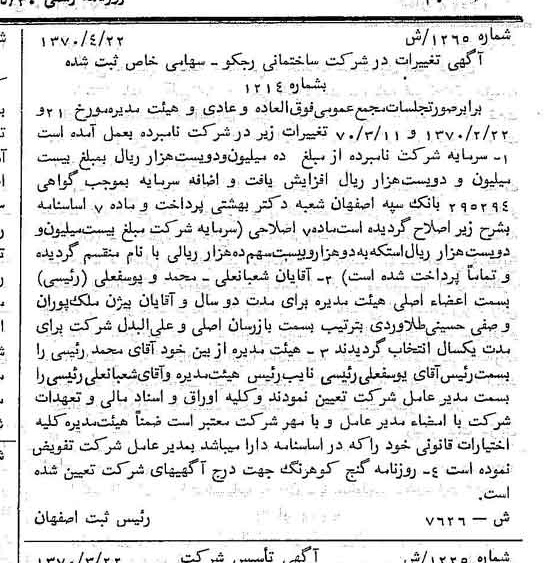 شماره ۱۲۶۵/ش ۱۳۷۰/۴/۲۲
آگهی تغییرات در شرکت ساختمانی رجکو ـ سهامی خاص ثبت شده
بشماره ۱۲۱۴
برابرصورتجلسات مجمع عمومی فوق‌العاده و عادی و هیئت مدیره مورخ ۲۱ و
۱۳۷۰/۲/۲۲ و ۷۰/۳/۱۱ تغییرات زیر در شرکت نامبرده بعمل آمده است
۱ـ سرمایه شرکت نامبرده از مبلغ ده میلیون و دویست هزار ریال بمبلغ بیست
میلیون و دویست هزار ریال افزایش یافت و اضافه سرمایه بموجب گواهی
۲۹۵۲۹۴ بانک سپه اصفهان شعبه دکتر بهشتی پرداخت و ماده ۷ اساسنامه
بشرح زیر اصلاح گردیده است ماده ۷ اصلاحی (سرمایه شرکت مبلغ بیست میلیون و
دویست هزار ریال استکه به دو هزار و بیست سهم ده هزار ریالی با نام منقسم گردیده
و تماماً پرداخت شده است) ۲ـ آقایان شعبانعلی ـ محمد و یوسفعلی (رئیسی)
بسمت اعضاء اصلی هیئت مدیره برای مدت دو سال و آقایان بیژن ملک‌پوران
و صفی حسینی طلاوردی بترتیب بسمت بازرسان اصلی و علی‌البدل شرکت برای
مدت یکسال انتخاب گردیدند ۳ ـ هیئت مدیره از بین خود آقای محمد رئیسی را
بسمت رئیس آقای یوسفعلی رئیسی نایب رئیس هیئت مدیره و آقای شعبانعلی رئیسی را
بسمت مدیر عامل شرکت تعیین نمودند و کلیه اوراق و اسناد مالی و تعهدات
شرکت با امضاء مدیر عامل و با مهر شرکت معتبر است ضمناً هیئت مدیره کلیه
اختیارات قانونی خود را که در اساسنامه دارا میباشد بمدیر عامل شرکت تفویض
نموده است ۴ـ روزنامه گنج کوهرنگ جهت درج آگهیهای شرکت تعیین شده
است.
ش — ۷۶۲۶ رئیس ثبت اصفهان
شماره ۱۲۲۵/ش آگهی تأسیس شرکت ۱۳۷۰/۳/۲۲